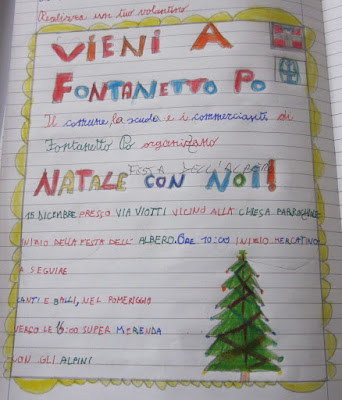 Realizzo un tuo volantino
VIENI A
FONTANETTO PO
Il comune, la scuola e i commercianti di
Fontanetto Po organizzano
FESTA DELL'ALBERO
NATALE CON NOI!
15 DICEMBRE PRESSO VIA VIOTTI VICINO ALLA CHIESA PARROCCHIALE
INIZIO DELLA FESTA DELL'ALBERO. ORE 10:00 INIZIO MERCATINO
A SEGUIRE
CANTI E BALLI, NEL POMERIGGIO
VERSO LE 16:00 SUPER MERENDA
CON GLI ALPINI